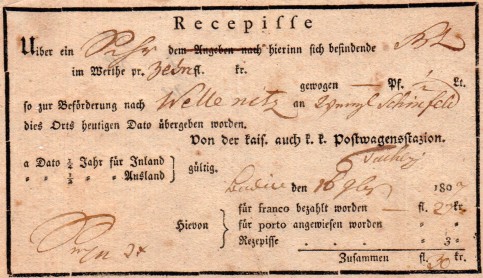 Recepisse
Uiber ein dem Angeben nach hierinn sich befindende
im Werthe pr. Zehn fl. kr.
gewogen — Pf. ½ Lt.
so zur Beförderung nach Wellenitz an Schinfeld
dies Orts heutigen Dato übergeben worden.
Von der kais. auch k. k. Postwagensstazion.
a Dato ¼ Jahr für Inland
" " ½ " " Ausland
gültig.
den 16 180
Hievon
für franco bezahlt worden — fl. kr.
für porto angewiesen worden " "
Rezepisse . . . " 3 "
Zusammen fl. 30 kr.